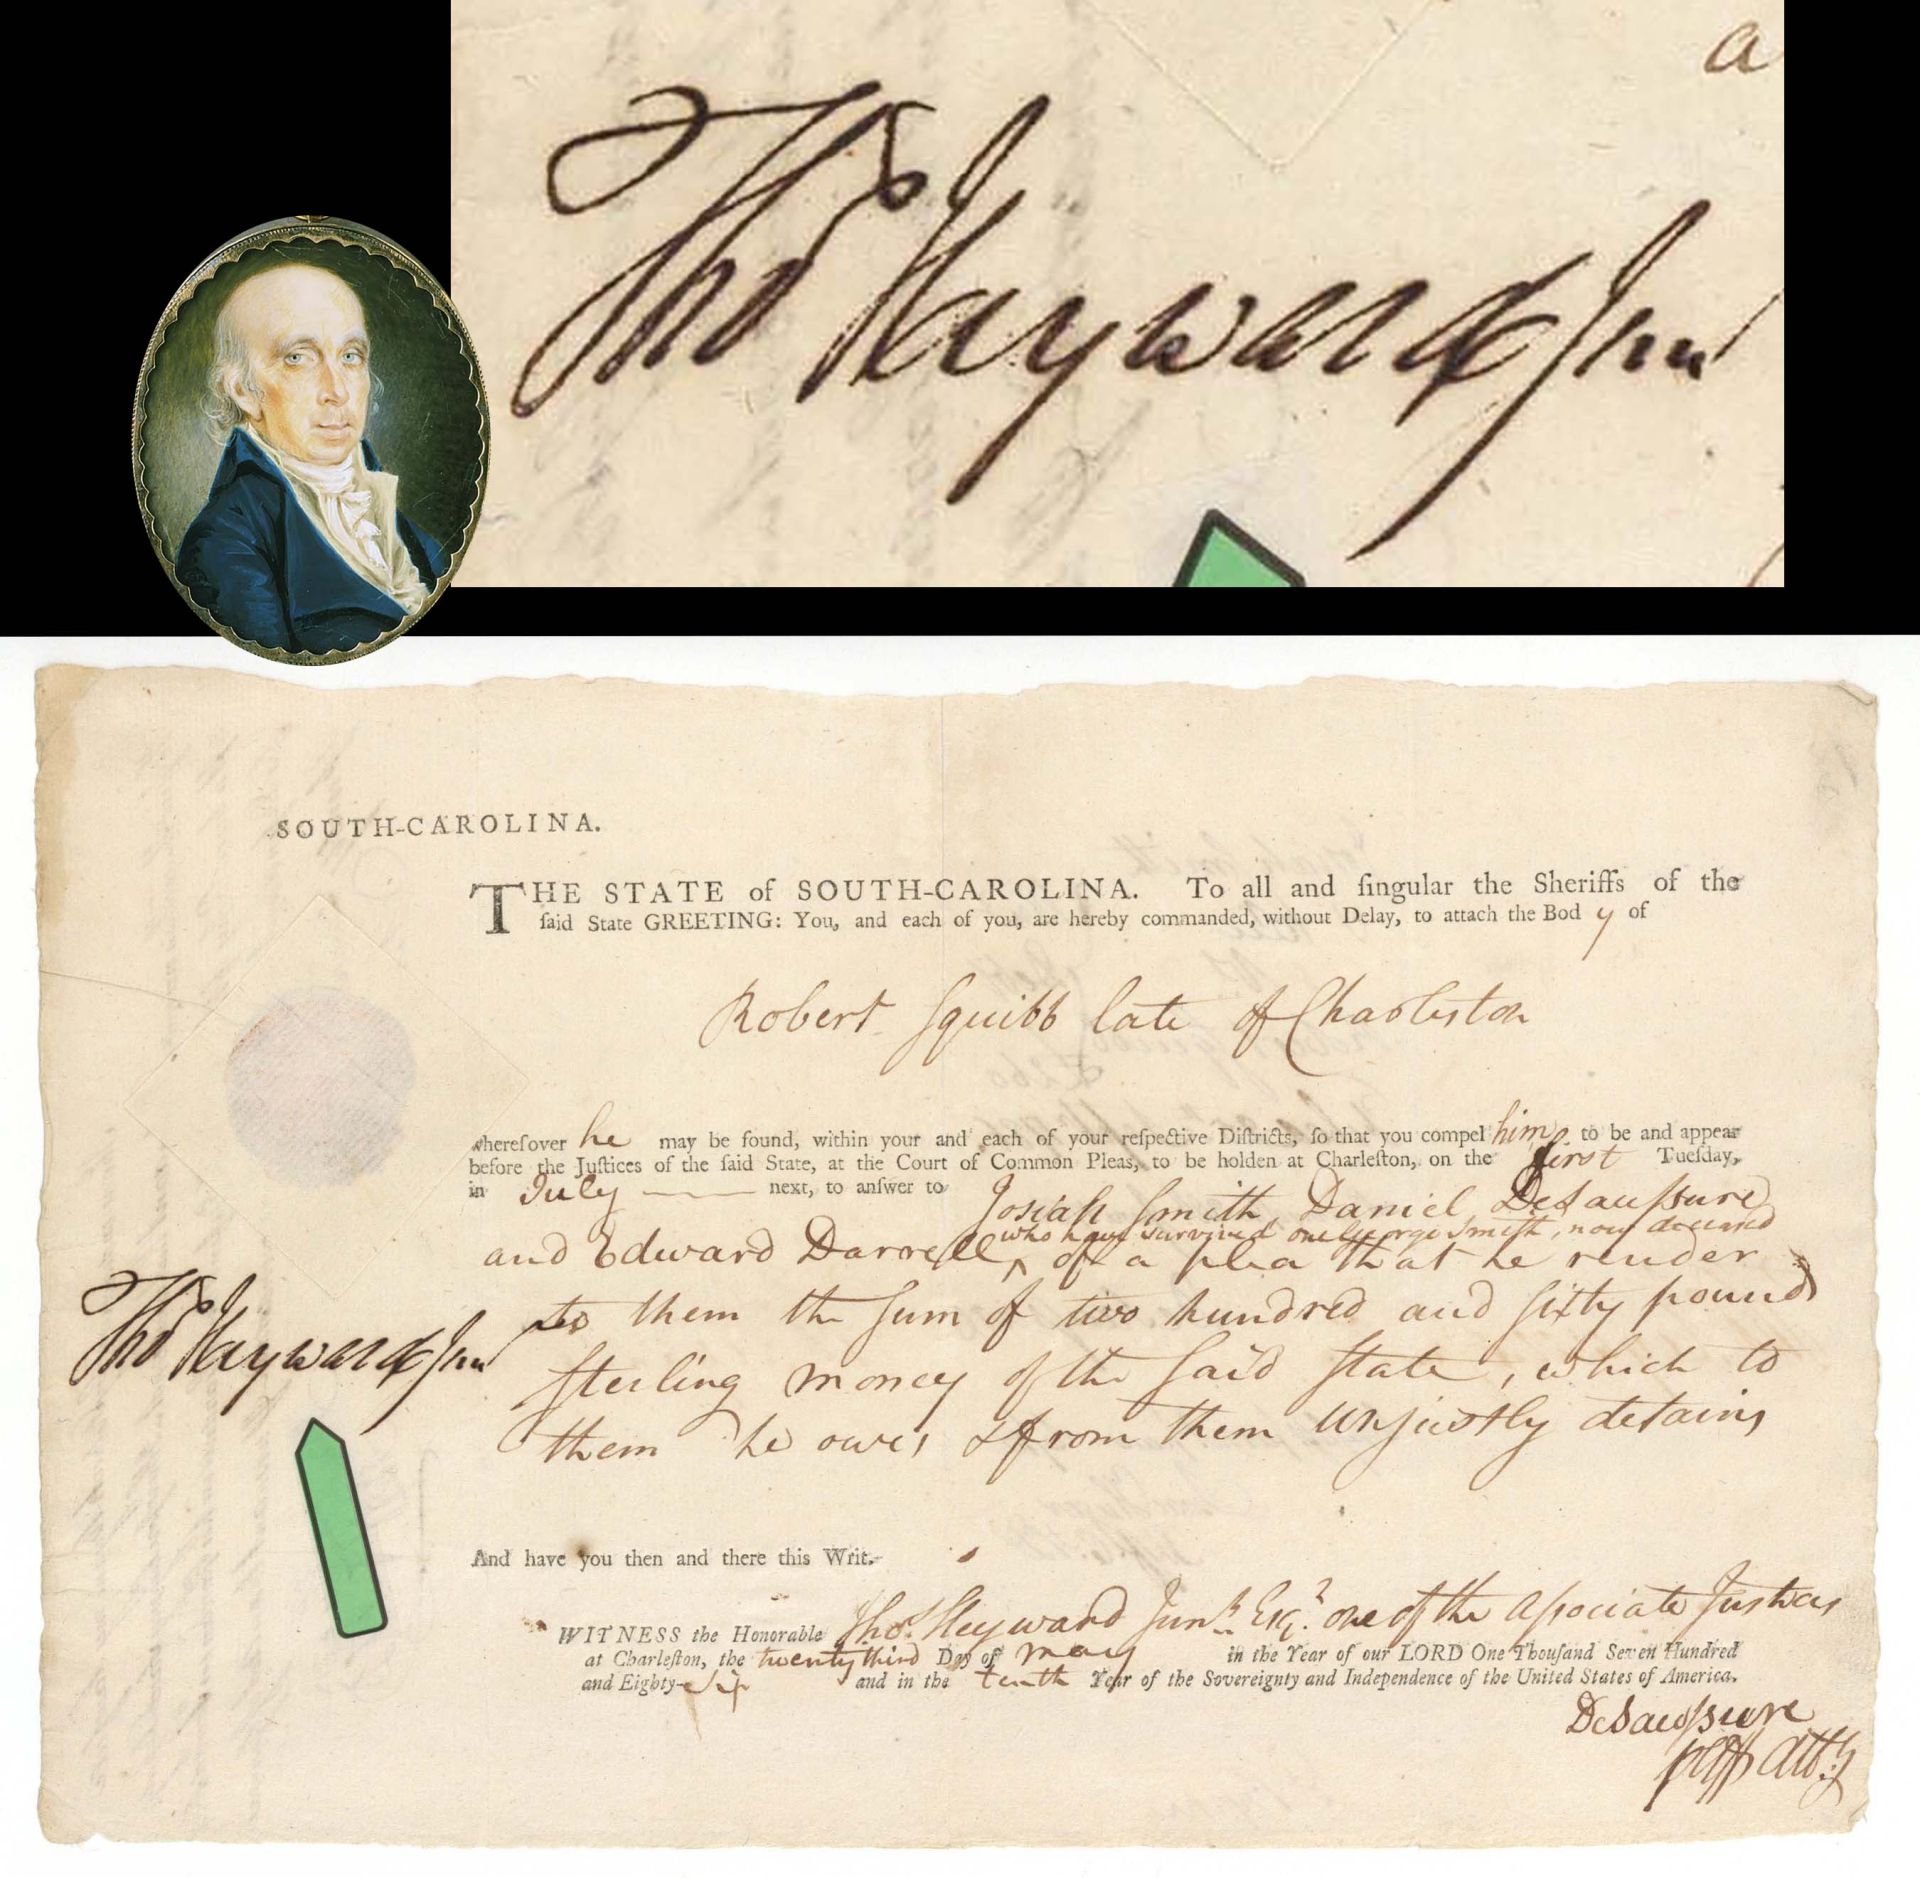 a
Tho.s Heyward Jun.r
SOUTH-CAROLINA.
THE STATE of SOUTH-CAROLINA. To all and ſingular the Sheriffs of the
ſaid State GREETING: You, and each of you, are hereby commanded, without Delay, to attach the Bod y of
Robert Squibb late of Charleston
whereſover he may be found, within your and each of your reſpective Diſtricts, ſo that you compel him to be and appear
before the Juſtices of the ſaid State, at the Court of Common Pleas, to be holden at Charleſton, on the first Tueſday,
in July next, to anſwer to Josiah Smith, Daniel DeSaussure
who have survived one George Smith, now deceased
and Edward Darrell ‸ of a plea that he render
to them the sum of two hundred and sixty pounds
Tho.s Heyward Jun.r
Sterling money of the said State, which to
them he owes & from them unjustly detains
And have you then and there this Writ.
WITNESS the Honorable Tho.s Heyward Jun.r Esq.r one of the Associate Justices
at Charleſton, the twenty third Day of May in the Year of our LORD One Thouſand Seven Hundred
and Eighty-six and in the tenth Year of the Sovereignty and Independence of the United States of America.
DeSaussure
plffs Atty